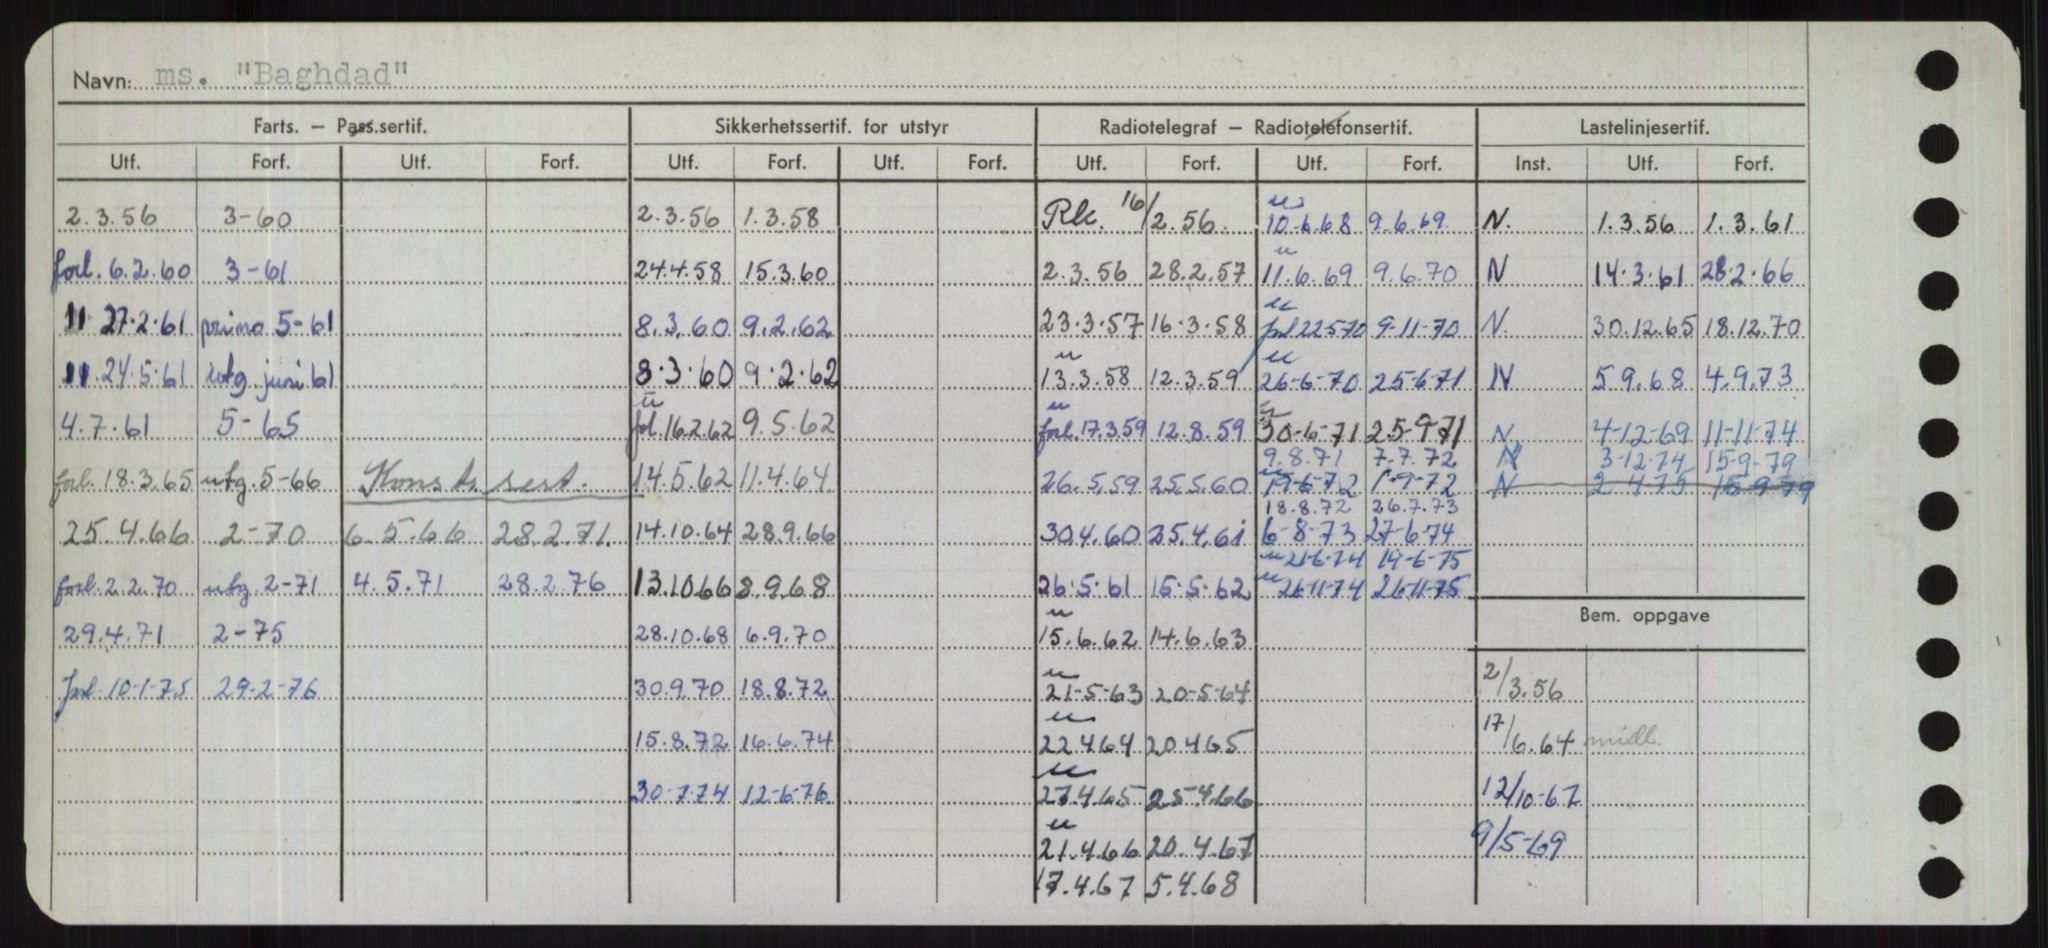 Navn: ms. "Baghdad"
Farts. — Pass.sertif. Sikkerhetssertif. for utstyr Radiotelegraf — Radiotelefonsertif. Lastelinjesertif.
Utf. Forf. Utf. Forf. Utf. Forf. Utf. Forf. Utf. Forf. Utf. Forf. Inst. Utf. Forf.
2.3.56 3-60 2.3.56 1.3.58 Rk. 16/2.56. " 10.6.68 9.6.69. N. 1.3.56 1.3.61
forl. 6.2.60 3-61 24.4.58 15.3.60 2.3.56 28.2.57 " 11.6.69 9.6.70 N 14.3.61 28.2.66
11 27.2.61 primo 5-61 8.3.60 9.2.62 23.3.57 16.3.58 " forl 22-5-70 9-11-70 N. 30.12.65 18.12.70
11.24.5.61 utg. juni 61 8.3.60 9.2.62 " 13.3.58 12.3.59 " 26-6-70 25-6-71 N 5.9.68 4.9.73
4.7.61 5-65 " forl. 16.2.62 9.5.62 " forl. 17.3.59 12.8.59 " 30-6-71 25-9-71 N 4-12-69 11-11-74
9.8.71 7.7.72 N 3-12-74 15-9-79
forl. 18.3.65 utg. 5-66 Konstr. sert. 14.5.62 11.4.64 26.5.59 25.5.60 " 19-6-72 1-9-72 N 2.4.75 15-9-79
18.8.72 26.7.73
25.4.66 2-70 6.5.66 28.2.71. 14.10.64 28.9.66 30.4.60 25.4.61 6-8-73 27-6-74
" 21-6-74 19-6-75
forl. 2.2.70 utg. 2-71 4.5.71 28.2.76 13.10.66 8.9.68 26.5.61 15.5.62 " 26-11-74 26-11-75
Bem. oppgave
29.4.71 2-75 28.10.68 6.9.70 " 15.6.62 14.6.63
forl. 10-1-75 29-2-76 30.9.70 18.8.72 " 21-5-63 20-5-64 2/3.56
15.8.72 16.6.74 " 22.4.64 20.4.65 17/6.64 midl.
30-7-74 12-6-76 " 27.4.65 25.4.66 12/10-67
" 21.4.66 20.4.67 9/5-69
17.4.67 5.4.68